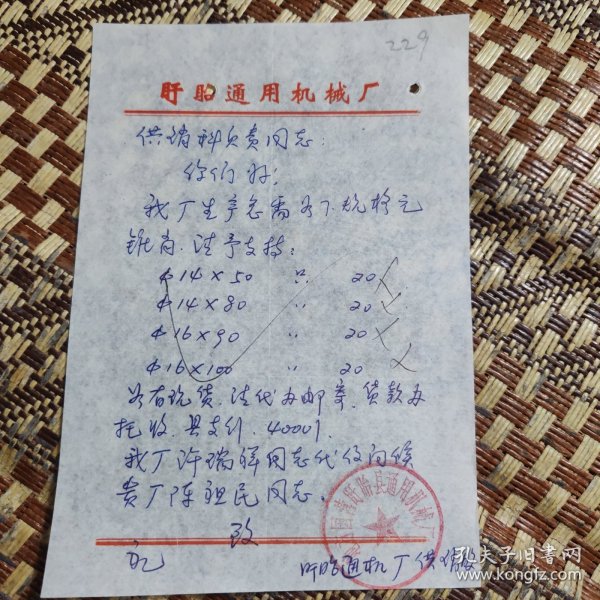 229
盱眙通用机械厂
供销科负责同志:
你们好!
我厂生产急需如下规格元
锥肖.请予支持:
φ14×50 只 20
φ14×80 〃 20
φ16×90 〃 20
φ16×100 〃 20
如有现货.请代办邮寄.货款办
托收.县支行.40001.
我厂许瑞辉同志代侯问候
贵厂陈祖民同志.
致
礼
盱眙通机厂供销股
盱眙县通用机械厂
孔夫子旧书网
www.kongfz.com